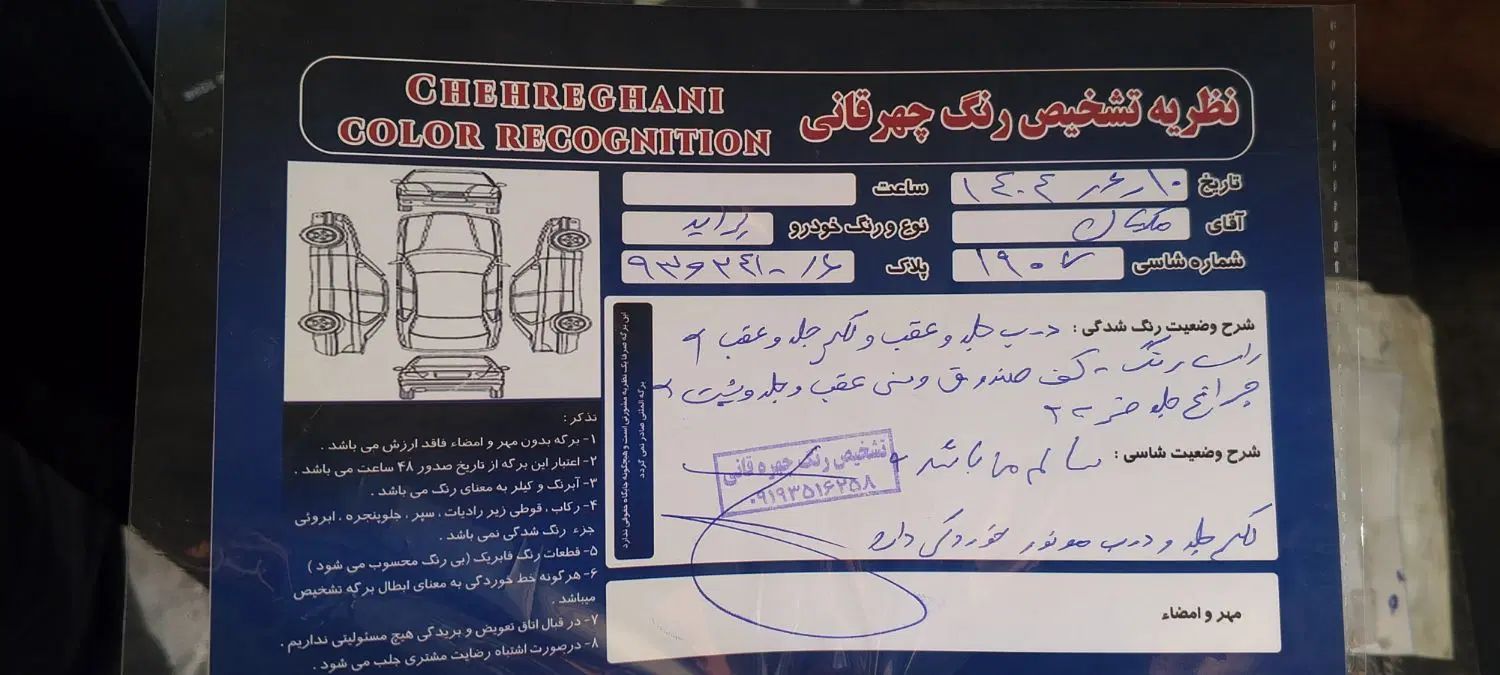 CHEHREGHANI
COLOR RECOGNITION
نظریه تشخیص رنگ چهرقانی
تاریخ ۱۴۰۴٫۶٫۱۰
ساعت
آقای
نوع و رنگ خودرو پراید
شماره شاسی ۱۹۰۷
پلاک
شرح وضعیت رنگ شدگی : درب جلو و عقب و گلگیر جلو و عقب
راست رنگ - کف صندوق و سینی عقب و جلو و پشت
چراغ جلو ضربه
شرح وضعیت شاسی : سالم می باشد
گلگیر جلو و درب موتور خوردگی دارد
تشخیص رنگ چهره قانی
۰۹۱۹۳۵۱۶۲۵۸
مهر و امضاء
این برگه صرفا یک نظریه مشورتی است و هیچگونه جایگاه حقوقی ندارد
برگه المثنی صادر نمی گردد
تذکر :
۱- برگه بدون مهر و امضاء فاقد ارزش می باشد .
۲- اعتبار این برگه از تاریخ صدور ۴۸ ساعت می باشد .
۳- آبرنگ و کیلر به معنای رنگ می باشد .
۴- رکاب ، قوطی زیر رادیات ، سپر ، جلوپنجره ، ابروئی
جزء رنگ شدگی نمی باشد .
۵- قطعات رنگ فابریک (بی رنگ محسوب می شود )
۶- هرگونه خط خوردگی به معنای ابطال برگه تشخیص
میباشد .
۷- در قبال اتاق تعویض و بریدگی هیچ مسئولیتی نداریم .
۸- درصورت اشتباه رضایت مشتری جلب می شود .